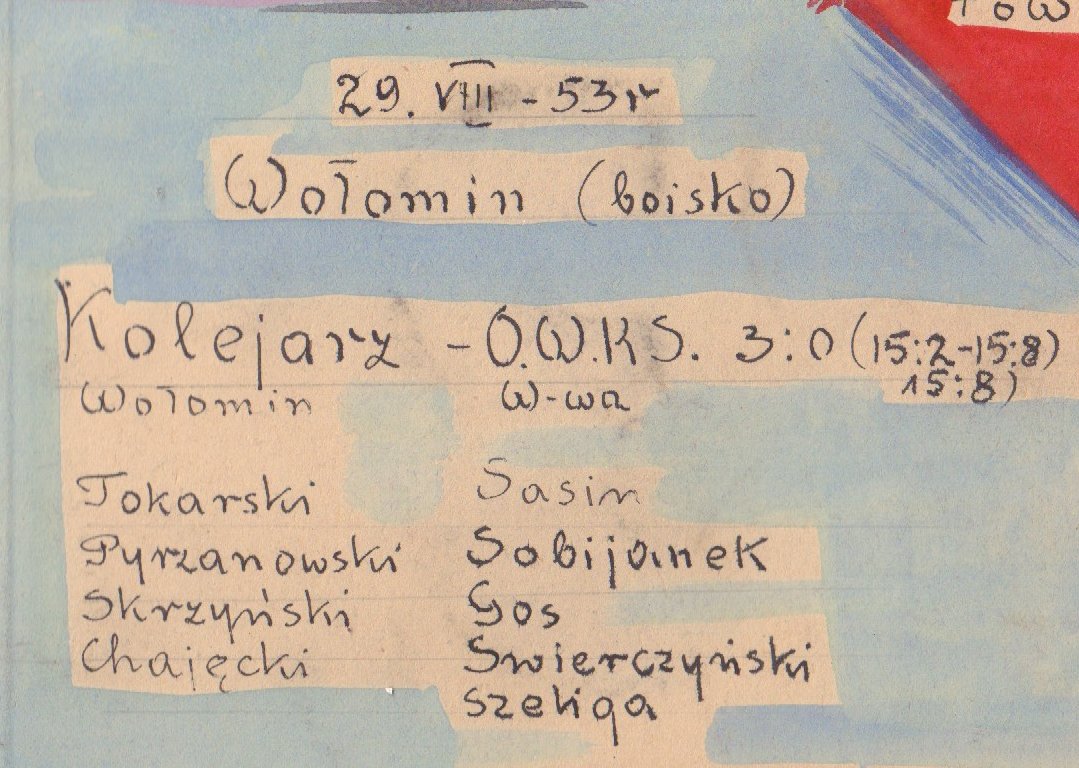 Tow
29. VIII - 53 r
Wołomin (boisko)
Kolejarz - O.W.K.S. 3:0 (15:2-15:8)
15:8)
Wołomin W-wa
Tokarski Sasin
Pyrzanowski Sobijanek
Skrzyński Gos
Chajęcki Swierczyński
Szeliga